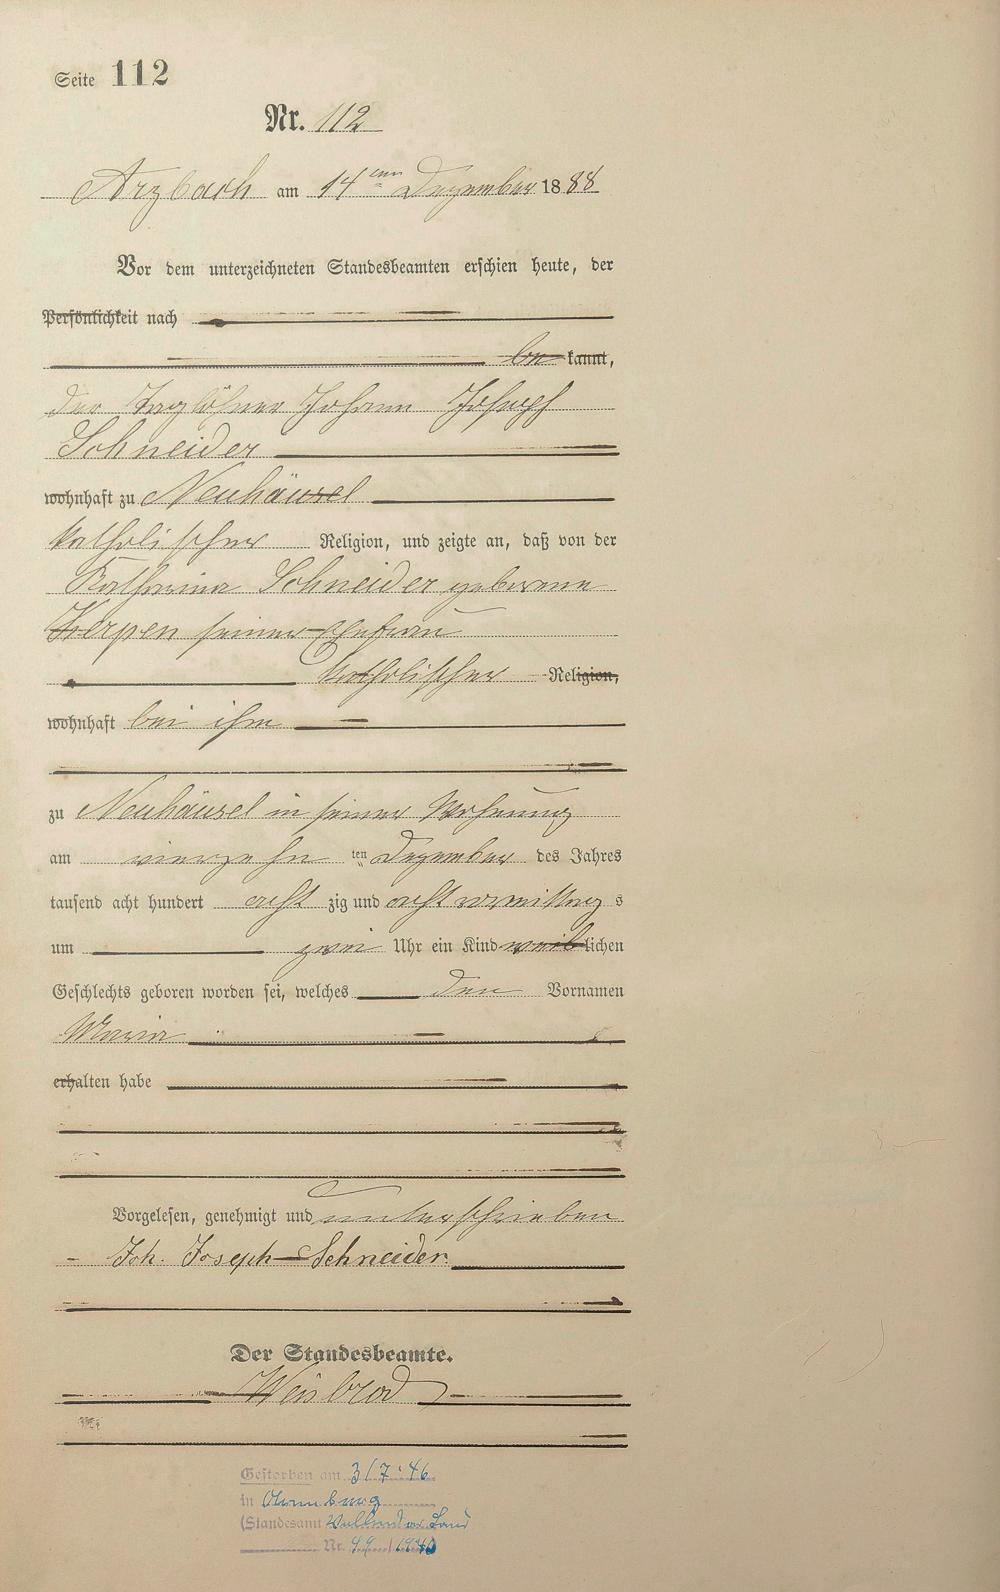 Seite 112
Nr. 112
Arzbach am 14ten Dezember 1888
Vor dem unterzeichneten Standesbeamten erschien heute, der
Persönlichkeit nach
be kannt,
der Taglöhner Johann Joseph
Schneider
wohnhaft zu Neuhäusel
katholischer Religion, und zeigte an, daß von der
Katharina Schneider geborene
Kerpen seiner Ehefrau
katholischer Religion,
wohnhaft bei ihm
zu Neuhäusel in seiner Wohnung
am vierzehn ten Dezember des Jahres
tausend acht hundert acht zig und acht vormittag s
um zwei Uhr ein Kind weib lichen
Geschlechts geboren worden sei, welches den Vornamen
Maria
erhalten habe
Vorgelesen, genehmigt und unterschrieben
Joh. Joseph Schneider
Der Standesbeamte.
Weisbrod
Gestorben am 31.7.46
in
(Standesamt Land
Nr. 49/1946